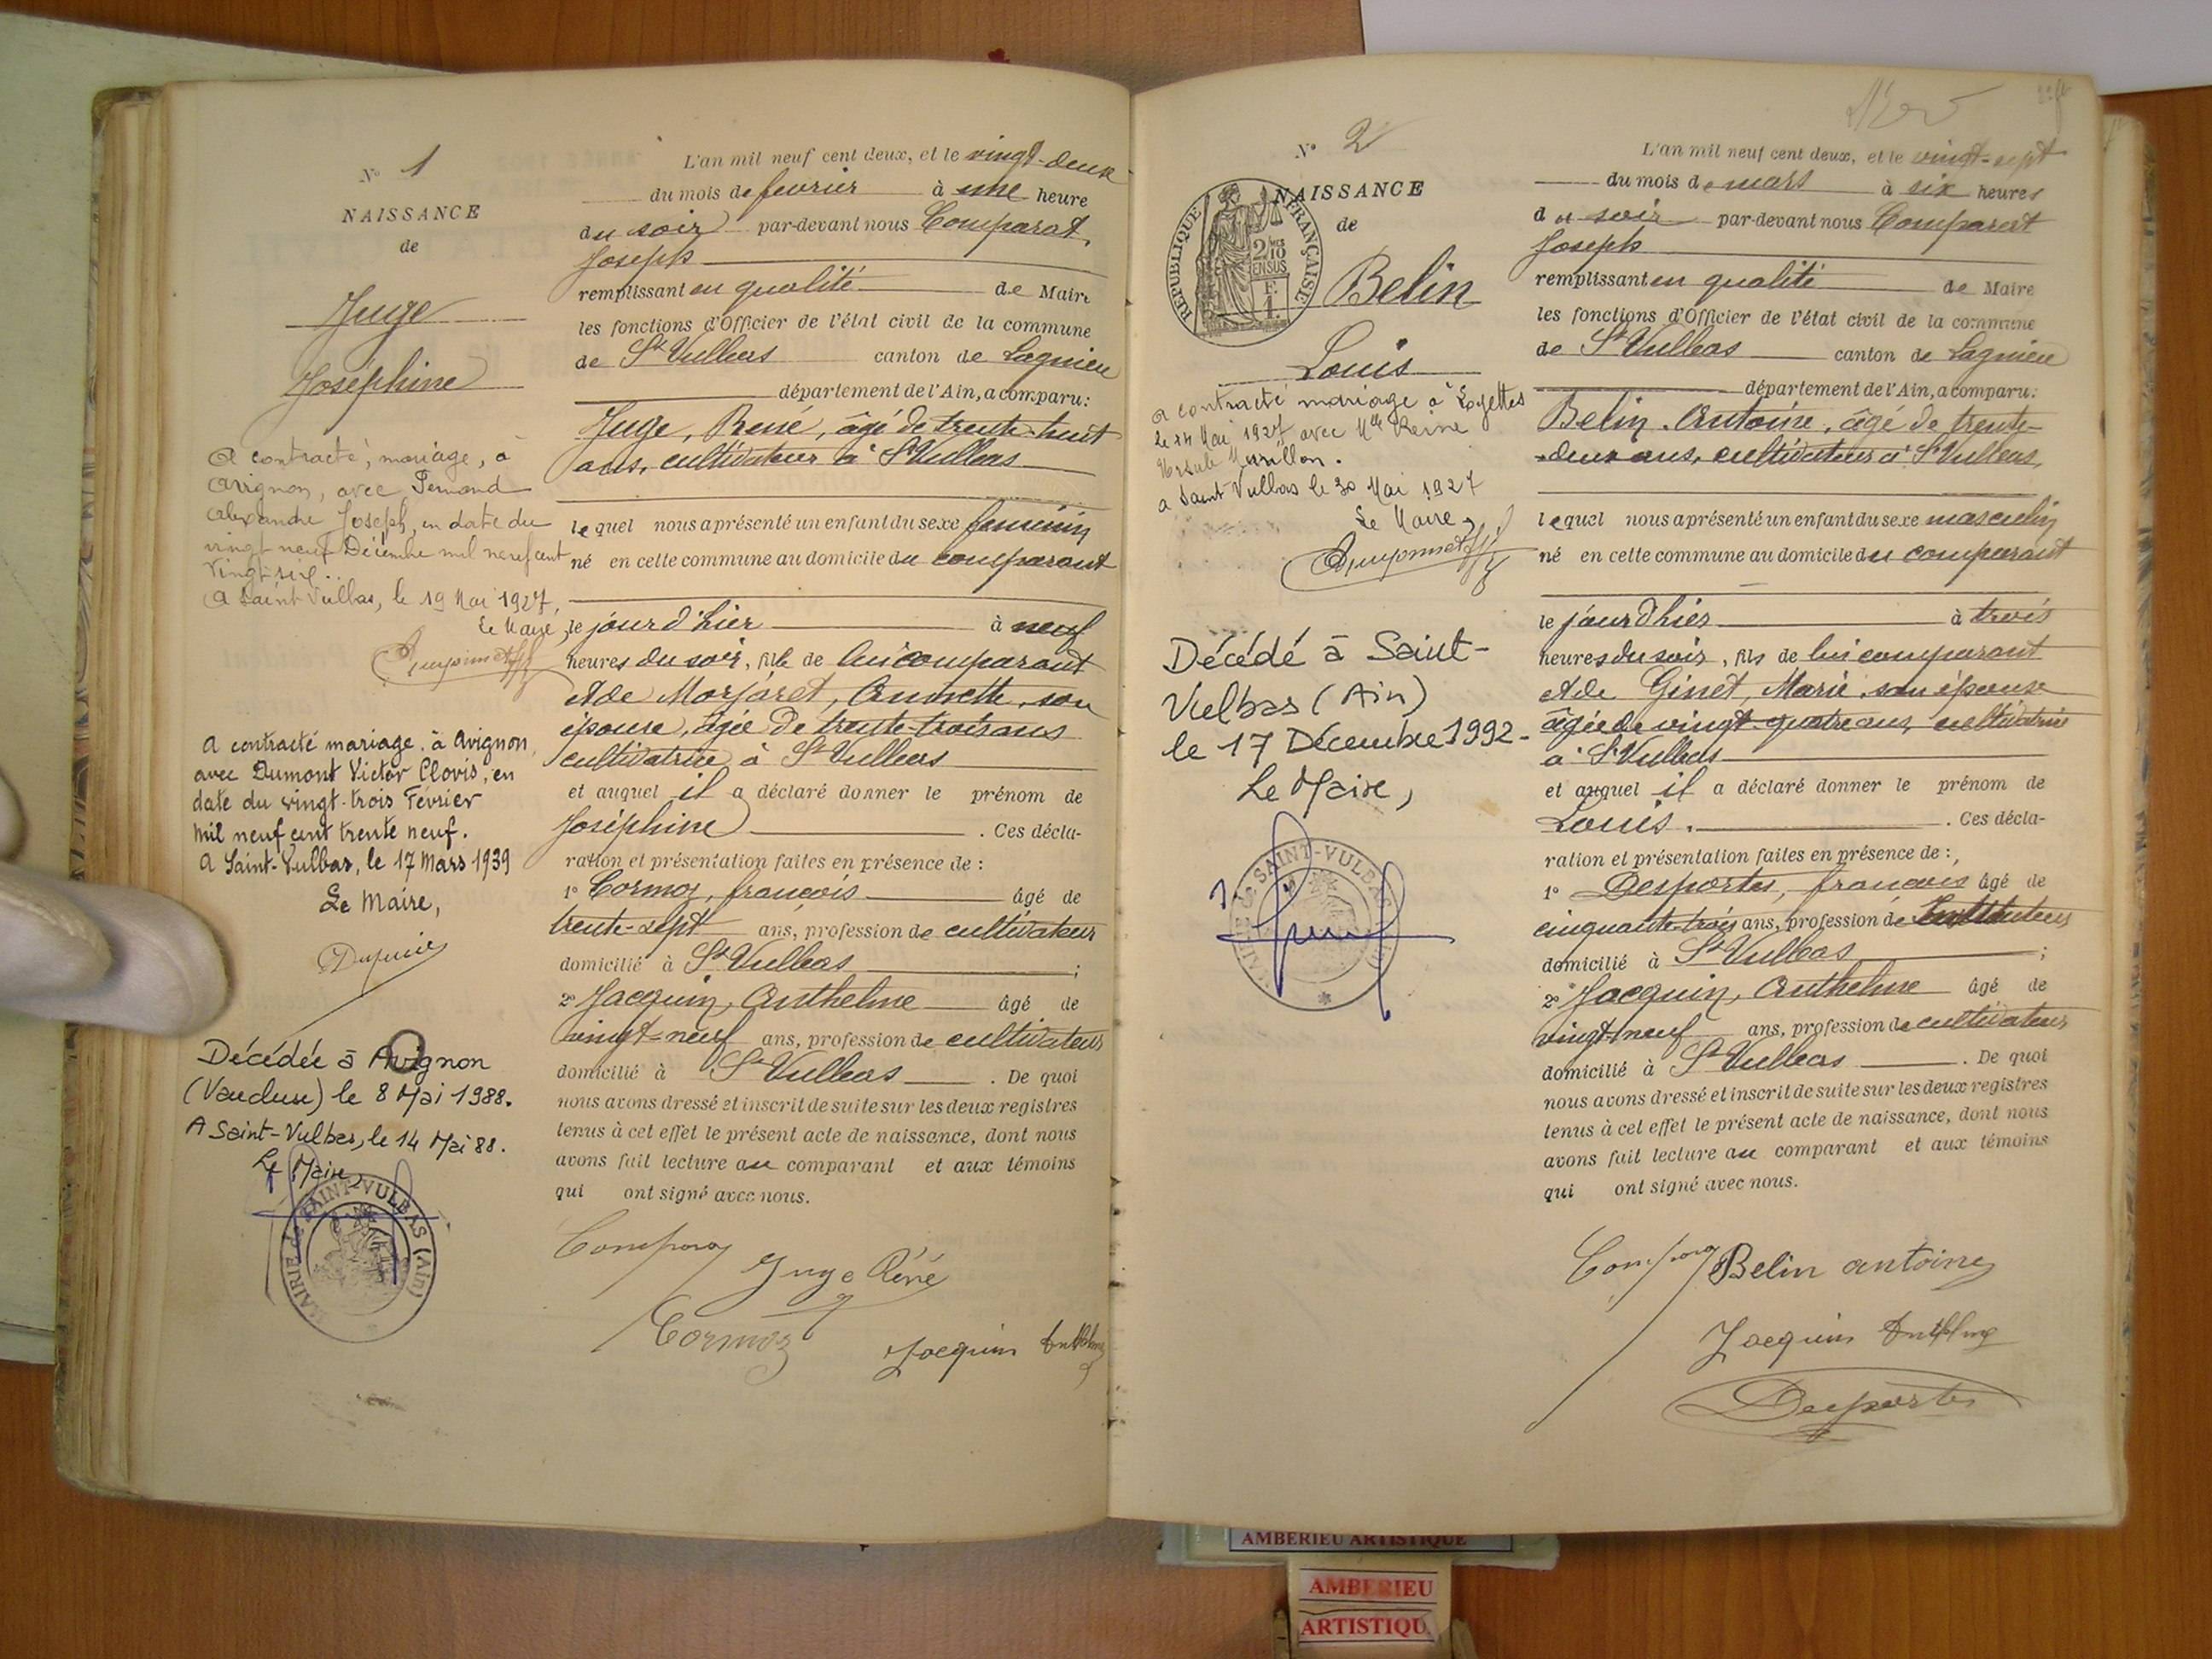 N° 1
NAISSANCE
de
Juge
Joséphine
A contracté, mariage, à
Avignon, avec Fernand
Alexandre Joseph, en date du
vingt neuf Décembre mil neuf cent
vingt-six..
A Saint Vulbas, le 19 Mai 1927,
Le Maire,
A contracté mariage, à Avignon,
avec Dumont Victor Clovis, en
date du vingt-trois Février
mil neuf cent trente neuf.
A Saint-Vulbas, le 17 Mars 1939
Le Maire,
Décédée à Avignon
(Vaucluse) le 8 Mai 1988.
A Saint-Vulbas, le 14 Mai 88.
Le Maire,
MAIRIE de SAINT-VULBAS (Ain)
L'an mil neuf cent deux, et le vingt-deux
du mois de février à une heure
du soir par-devant nous Comparat,
Joseph
remplissant en qualité de Maire
les fonctions d'Officier de l'état civil de la commune
de St Vulbas canton de Lagnieu
département de l'Ain, a comparu:
Juge, René, âgé de trente-huit
ans, cultivateur à St Vulbas
lequel nous a présenté un enfant du sexe féminin
né en cette commune au domicile du comparant
le jour d'hier à neuf
heures du soir, fille de lui comparant
et de Morjaret, Annette, son
épouse, âgée de trente-trois ans
cultivatrice à St Vulbas
et auquel il a déclaré donner le prénom de
Joséphine. Ces décla-
ration et présentation faites en présence de :
1° Cormoz, françois âgé de
trente-sept ans, profession de cultivateur
domicilié à St Vulbas ;
2° Jacquin, Anthelme âgé de
vingt-neuf ans, profession de cultivateur
domicilié à St Vulbas. De quoi
nous avons dressé et inscrit de suite sur les deux registres
tenus à cet effet le présent acte de naissance, dont nous
avons fait lecture au comparant et aux témoins
qui ont signé avec nous.
Juge Réné
Cormoz
Jacquin Anthelme
N° 2
NAISSANCE
de
RÉPUBLIQUE FRANÇAISE
2/10
EN SUS
F.
1.
Belin
Louis
A contracté mariage à Loyettes
le 14 Mai 1927 avec Mlle Reine
Ursule Marillon.
A Saint Vulbas le 30 Mai 1927
Le Maire,
Décédé à Saint-
Vulbas (Ain)
le 17 Décembre 1992-
Le Maire,
MAIRIE de SAINT-VULBAS (Ain)
L'an mil neuf cent deux, et le vingt-sept
du mois de mars à six heures
du soir par-devant nous Comparat
Joseph
remplissant en qualité de Maire
les fonctions d'Officier de l'état civil de la commune
de St Vulbas canton de Lagnieu
département de l'Ain, a comparu:
Belin. Antoine, âgé de trente-
deux ans, cultivateur à St Vulbas,
lequel nous a présenté un enfant du sexe masculin
né en cette commune au domicile du comparant
le jour d'hier à trois
heures du soir, fils de lui comparant
et de Ginet, Marie, son épouse
âgée de vingt-quatre ans, cultivatrice
à St Vulbas
et auquel il a déclaré donner le prénom de
Louis. Ces décla-
ration et présentation faites en présence de :
1° Desportes, françois âgé de
cinquante-trois ans, profession de Instituteur
domicilié à St Vulbas ;
2° Jacquin, Anthelme âgé de
vingt-neuf ans, profession de cultivateur
domicilié à St Vulbas. De quoi
nous avons dressé et inscrit de suite sur les deux registres
tenus à cet effet le présent acte de naissance, dont nous
avons fait lecture au comparant et aux témoins
qui ont signé avec nous.
Belin antoine
Jacquin Anthelme
Desportes
AMBERIEU ARTISTIQUE
AMBERIEU
ARTISTIQU